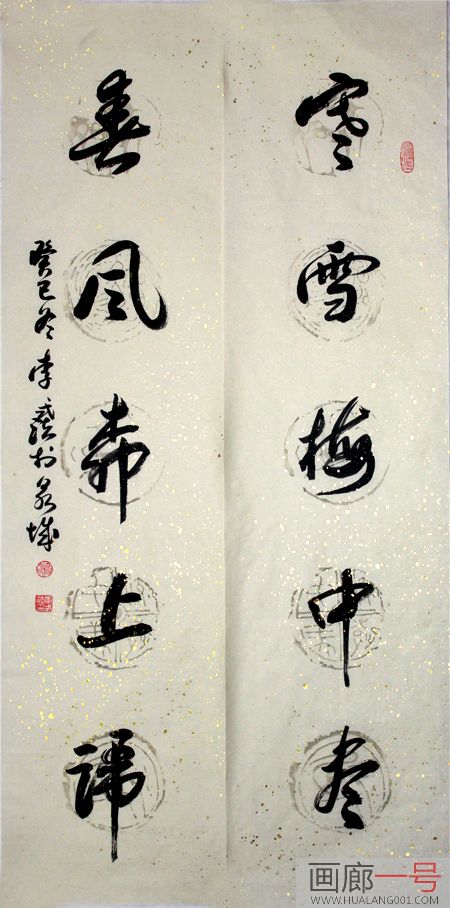 寒雪梅中尽
春风柳上歸
癸巳冬李於泉城
画廊一号
WWW.HUALANG001.COM